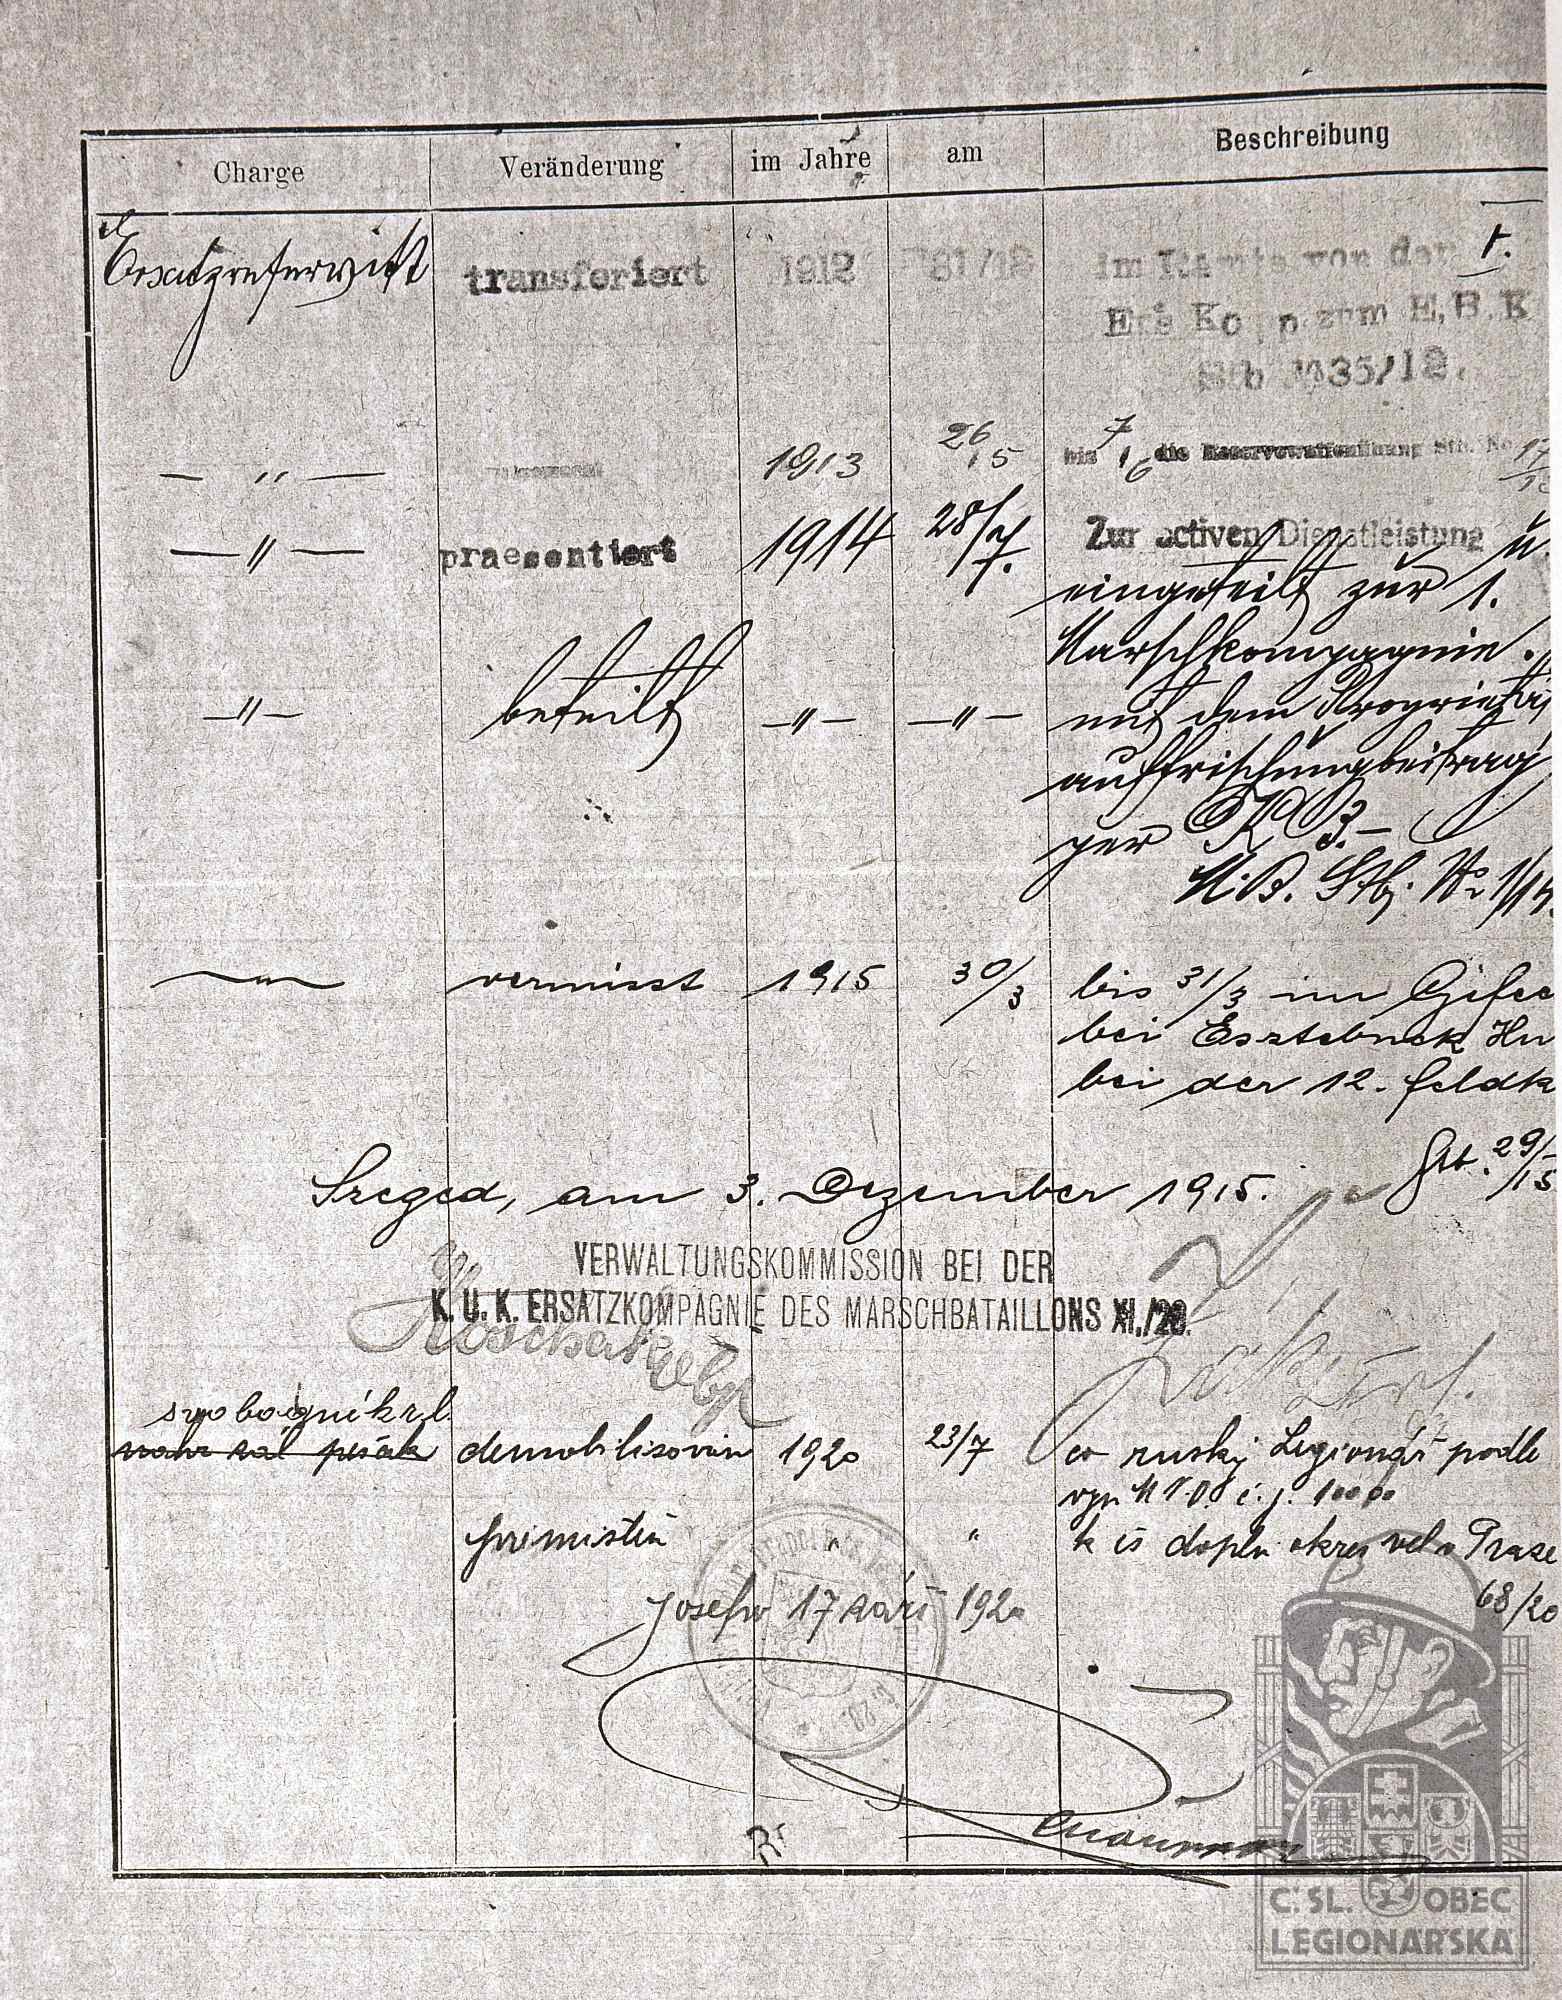 Charge Veränderung im Jahre am Beschreibung
Ersatzreservist transferiert 1912 31/12 im Stande von der 1.
Ers Komp. zum E.B.K
Stb 1035/12.
— „ — 1913 26/5 bis 7/6 die Reservewaffenübung Stb. No 17
— „ — praesentiert 1914 28/7. Zur activen Dienstleistung u.
eingeteilt zur 1.
Marschkompagnie.
— „ — beteilt — „ — — „ — mit dem Proprietäs
auffrischungbeitrag
per K 3.—
M.B. Stb. No 1/14.
— „ — vermisst 1915 30/3 bis 31/3 im Gefec
bei Esztebnek Un
bei der 12. Feldk
Stb. 29/15
Szeged, am 3. Dezember 1915.
VERWALTUNGSKOMMISSION BEI DER
K. U. K. ERSATZKOMPAGNIE DES MARSCHBATAILLONS XI./28.
svobodník r.l.
demobilisován 1920 23/7 co ruský Legionář podle
výn M.N.O. č.j. 10000
přemístěn „ „ k čs dopln okres vel v Praze
68/20
Josefov 17 září 1920
Č. SL. OBEC
LEGIONÁŘSKÁ